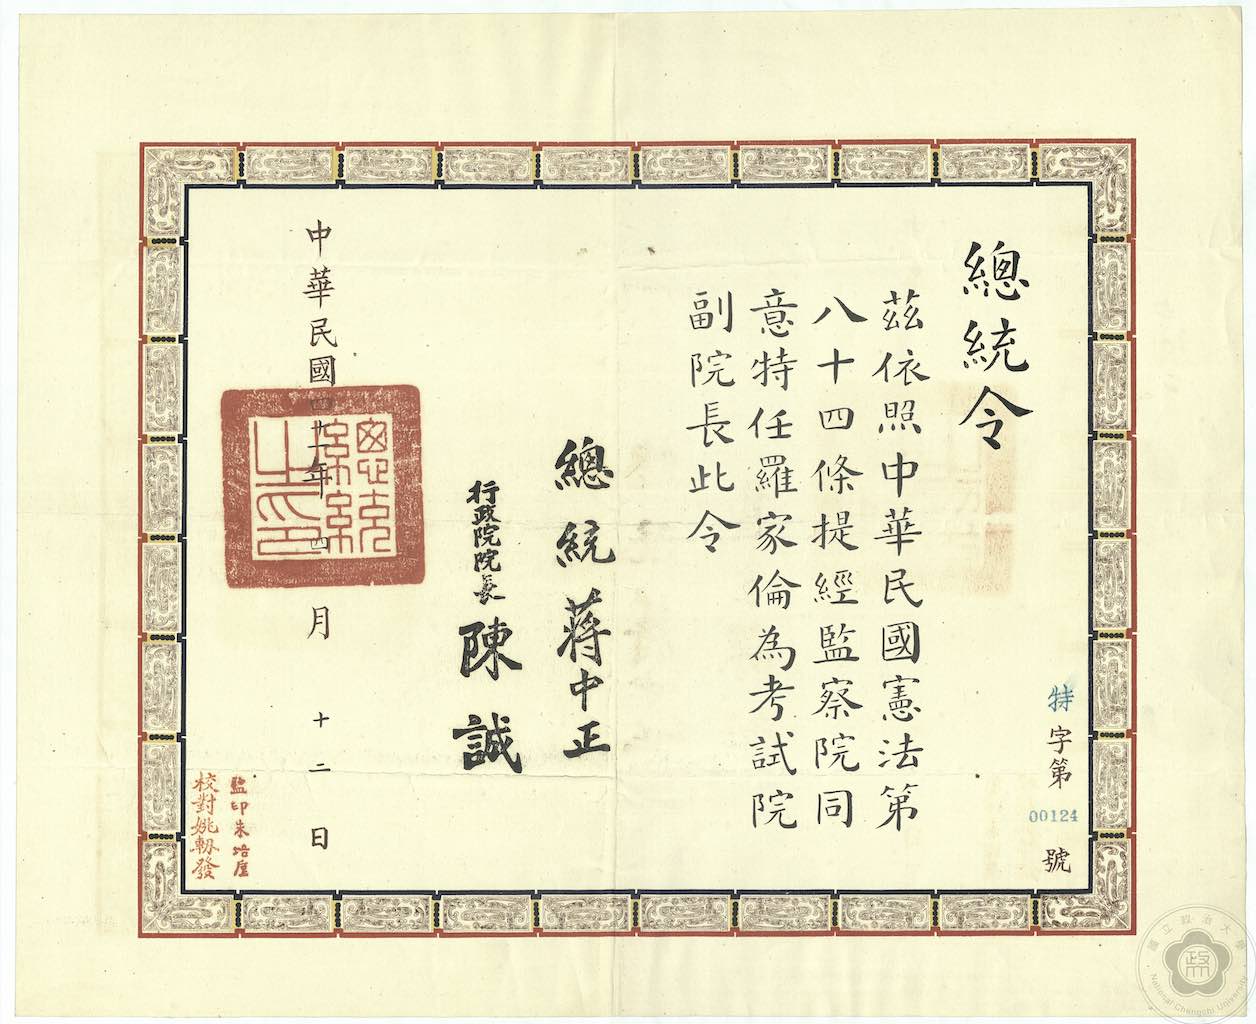 特字第00124號
總統令
茲依照中華民國憲法第
八十四條提經監察院同
意特任羅家倫為考試院
副院長此令
總統蔣中正
行政院院長陳誠
中華民國四十一年四月十二日
總統之印
監印朱
校對姚發
國立政治大學
National Chengchi University
政